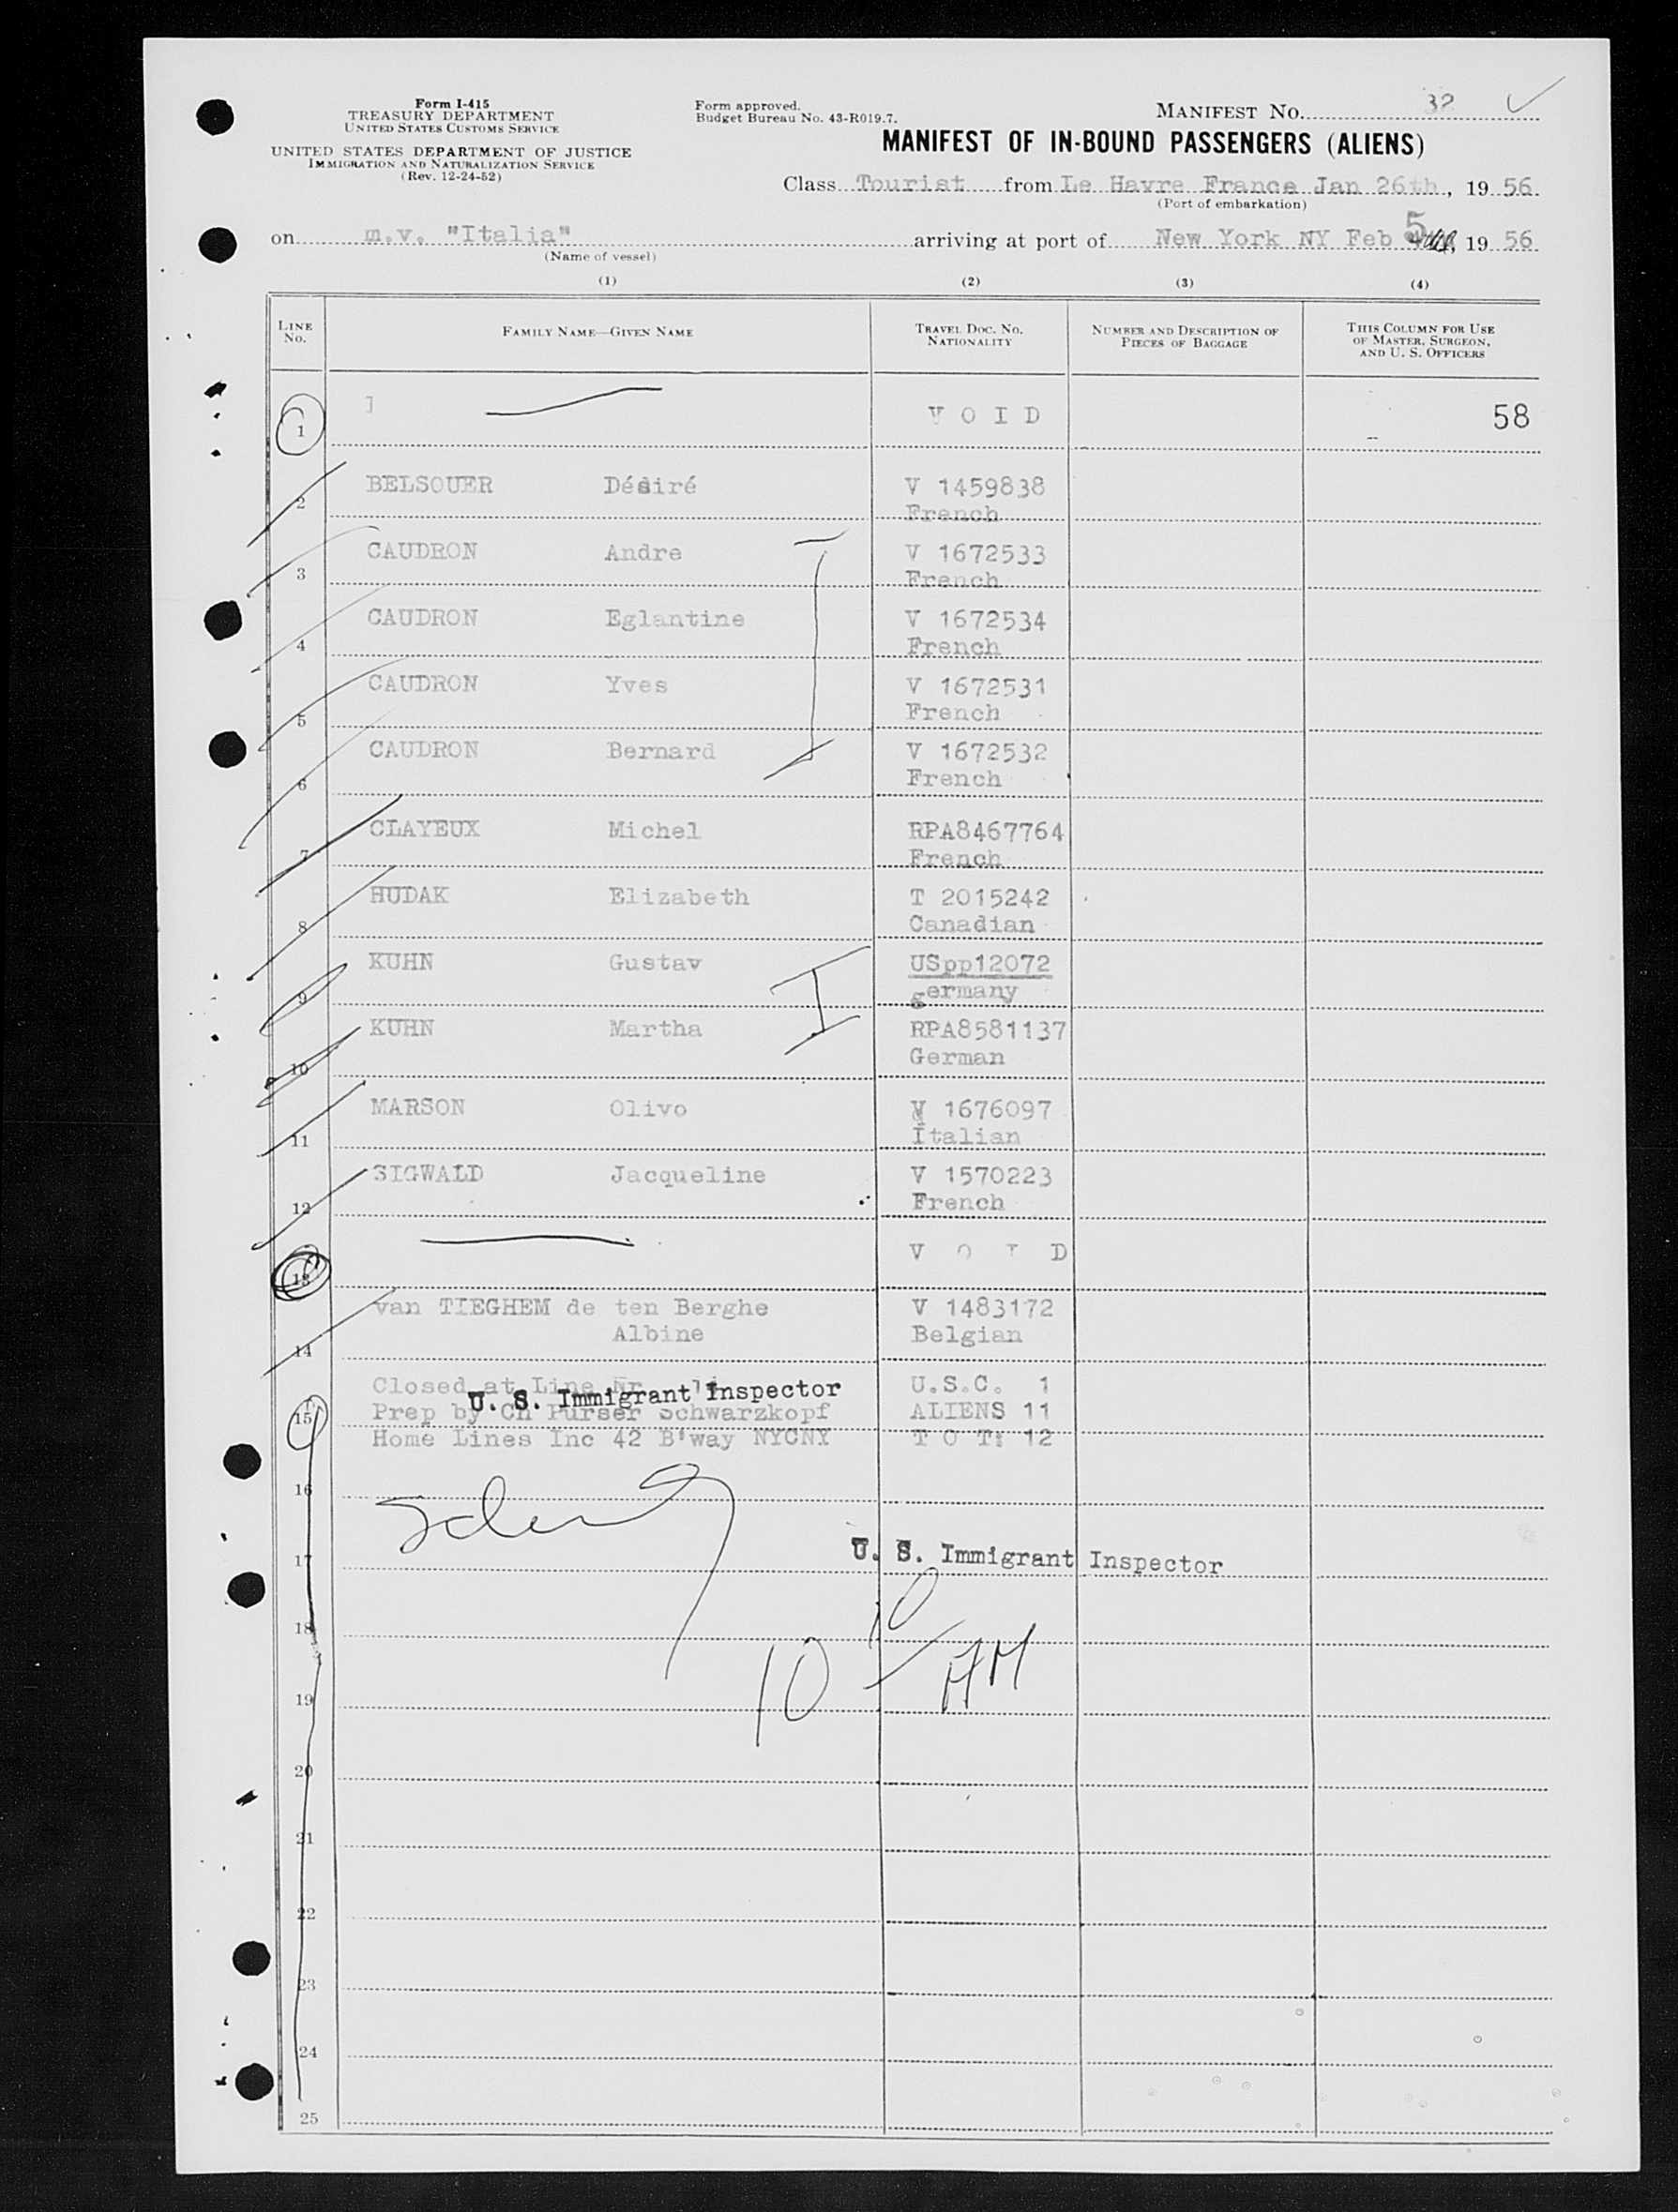 Form I-415
TREASURY DEPARTMENT
UNITED STATES CUSTOMS SERVICE
UNITED STATES DEPARTMENT OF JUSTICE
IMMIGRATION AND NATURALIZATION SERVICE
(Rev. 12-24-52)
Form approved.
Budget Bureau No. 43-R019.7.
MANIFEST NO. 32
MANIFEST OF IN-BOUND PASSENGERS (ALIENS)
Class Tourist from Le Havre France Jan 26th, 19 56
(Port of embarkation)
on m.v. "Italia" arriving at port of New York NY Feb 5, 19 56
(Name of vessel)
(1) (2) (3) (4)
LINE NO. FAMILY NAME—GIVEN NAME TRAVEL DOC. NO. NATIONALITY NUMBER AND DESCRIPTION OF PIECES OF BAGGAGE THIS COLUMN FOR USE OF MASTER, SURGEON, AND U. S. OFFICERS
1 V O I D 58
2 BELSOUER Désiré V 1459838
French
3 CAUDRON Andre V 1672533
French
4 CAUDRON Eglantine V 1672534
French
5 CAUDRON Yves V 1672531
French
6 CAUDRON Bernard V 1672532
French
7 CLAYEUX Michel RPA8467764
French
8 HUDAK Elizabeth T 2015242
Canadian
9 KUHN Gustav USpp12072
germany
10 KUHN Martha RPA8581137
German
11 MARSON Olivo V 1676097
Italian
12 SIGWALD Jacqueline V 1570223
French
13 V O I D
van TIEGHEM de ten Berghe V 1483172
14 Albine Belgian
Closed at Line Nr U.S.C. 1
U. S. Immigrant Inspector
15 Prep by Ch Purser Schwarzkopf ALIENS 11
Home Lines Inc 42 B'way NYCNY T O T: 12
16
17 U. S. Immigrant Inspector
18
10 10 AM
19
20
21
22
23
24
25